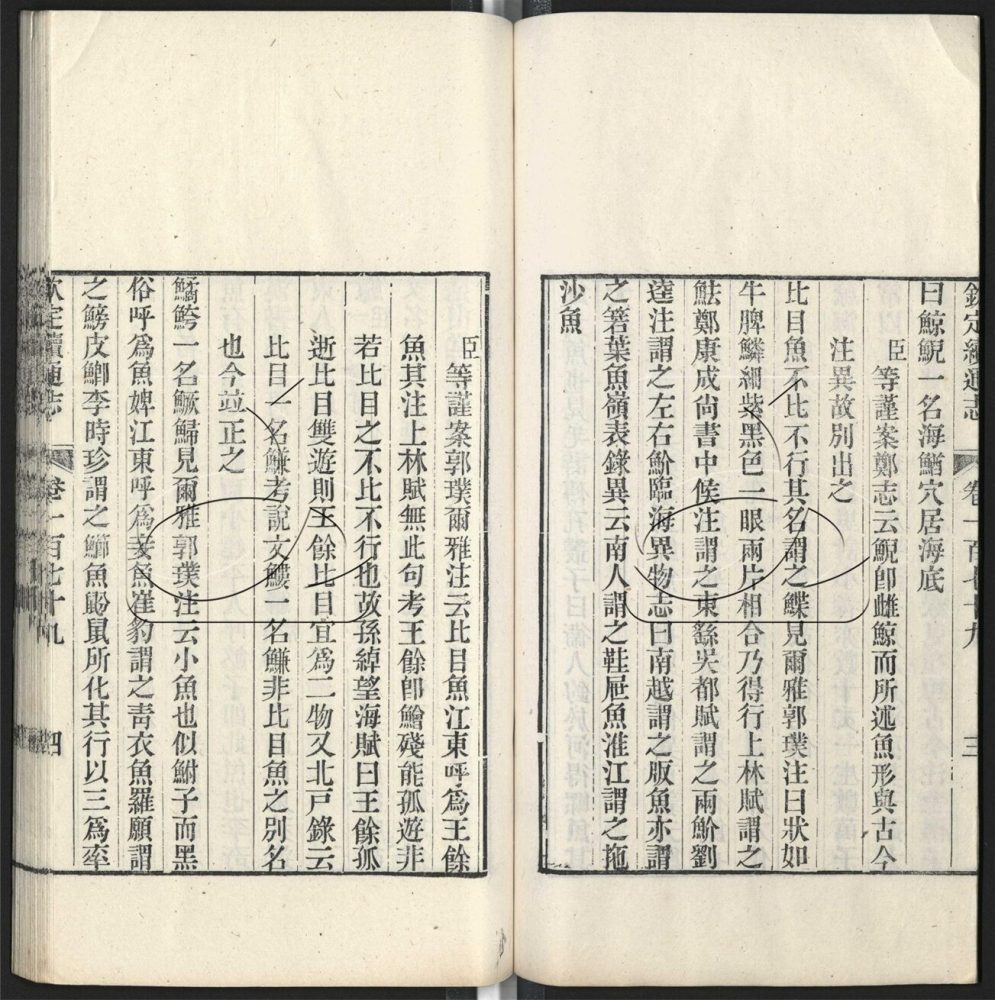 欽定續通志 卷一百七十九 三
曰鯨鯢一名海鰌穴居海底
臣等謹案鄭志云鯢卽雌鯨而所述魚形與古今
注異故別出之
比目魚不比不行其名謂之鰈見爾雅郭璞注曰狀如
牛脾鱗細紫黑色一眼兩片相合乃得行上林賦謂之
魼鄭康成尚書中候注謂之東鰩吳都賦謂之兩魪劉
逵注謂之左右魪臨海異物志曰南越謂之版魚亦謂
之箬葉魚嶺表錄異云南人謂之鞋屜魚淮江謂之拖
沙魚
臣等謹案郭璞爾雅注云比目魚江東呼爲王餘
魚其注上林賦無此句考王餘卽鱠殘能孤遊非
若比目之不比不行也故孫綽望海賦曰王餘孤
逝比目雙遊則王餘比目宜爲二物又北戶錄云
比目一名鰜考說文鰜一名鰜非比目魚之別名
也今竝正之
鱊鮬一名鱖鯞見爾雅郭璞注云小魚也似鮒子而黑
俗呼爲魚婢江東呼爲妾魚崔豹謂之靑衣魚羅願謂
之鰟皮鯽李時珍謂之鰤魚鼢鼠所化其行以三爲率
欽定續通志 卷一百七十九 四